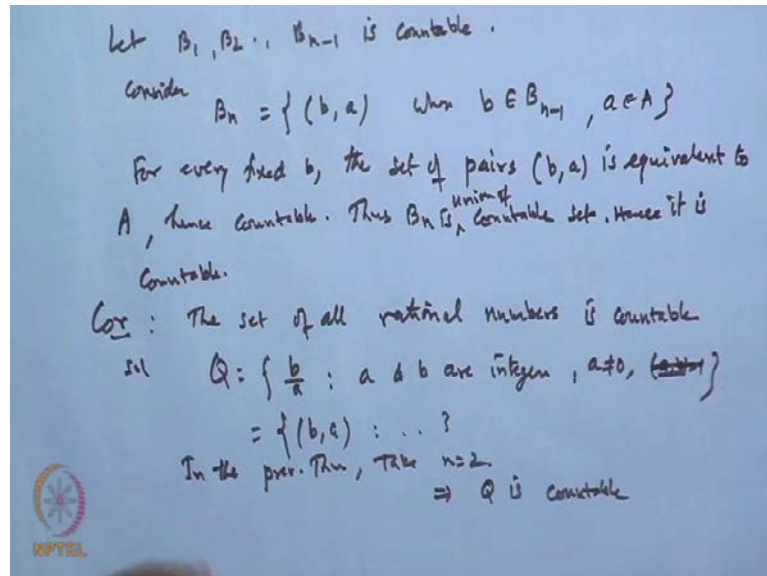 Let B₁, B₂ .., Bₙ₋₁ is countable.
Consider
Bₙ = { (b, a) where b ∈ Bₙ₋₁, a ∈ A }
For every fixed b, the set of pairs (b, a) is equivalent to
A, hence countable. Thus Bₙ is union of countable sets. Hence it is
countable.
Cor : The set of all rational numbers is countable
Sol Q = { b/a : a & b are integers, a≠0, }
= { (b, a) : .. }
In the prev. Thm, Take n=2
⇒ Q is countable
NPTEL